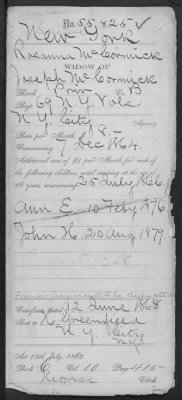 No. 55,825
New York
Roseanna McCormick
WIDOW OF
Joseph McCormick
Rank Priv Co. B
Reg't 69 N.Y. Vols
N.Y. City Agency
Rate per Month $ 8.-
Commencing 7 Dec 1864.
Additional sum of $2 per month for each of
the following children, until arriving at the age of
16 years, commencing 25 July 1866.
Ann E. 10 Feby 1876.
John H. 20 Aug 1879.
Certificate dated 12 June 1868
Greenfield
N.Y. City
N.Y.
Act 14th July, 1862
Book Vol. 10 Page 415
Clerk.